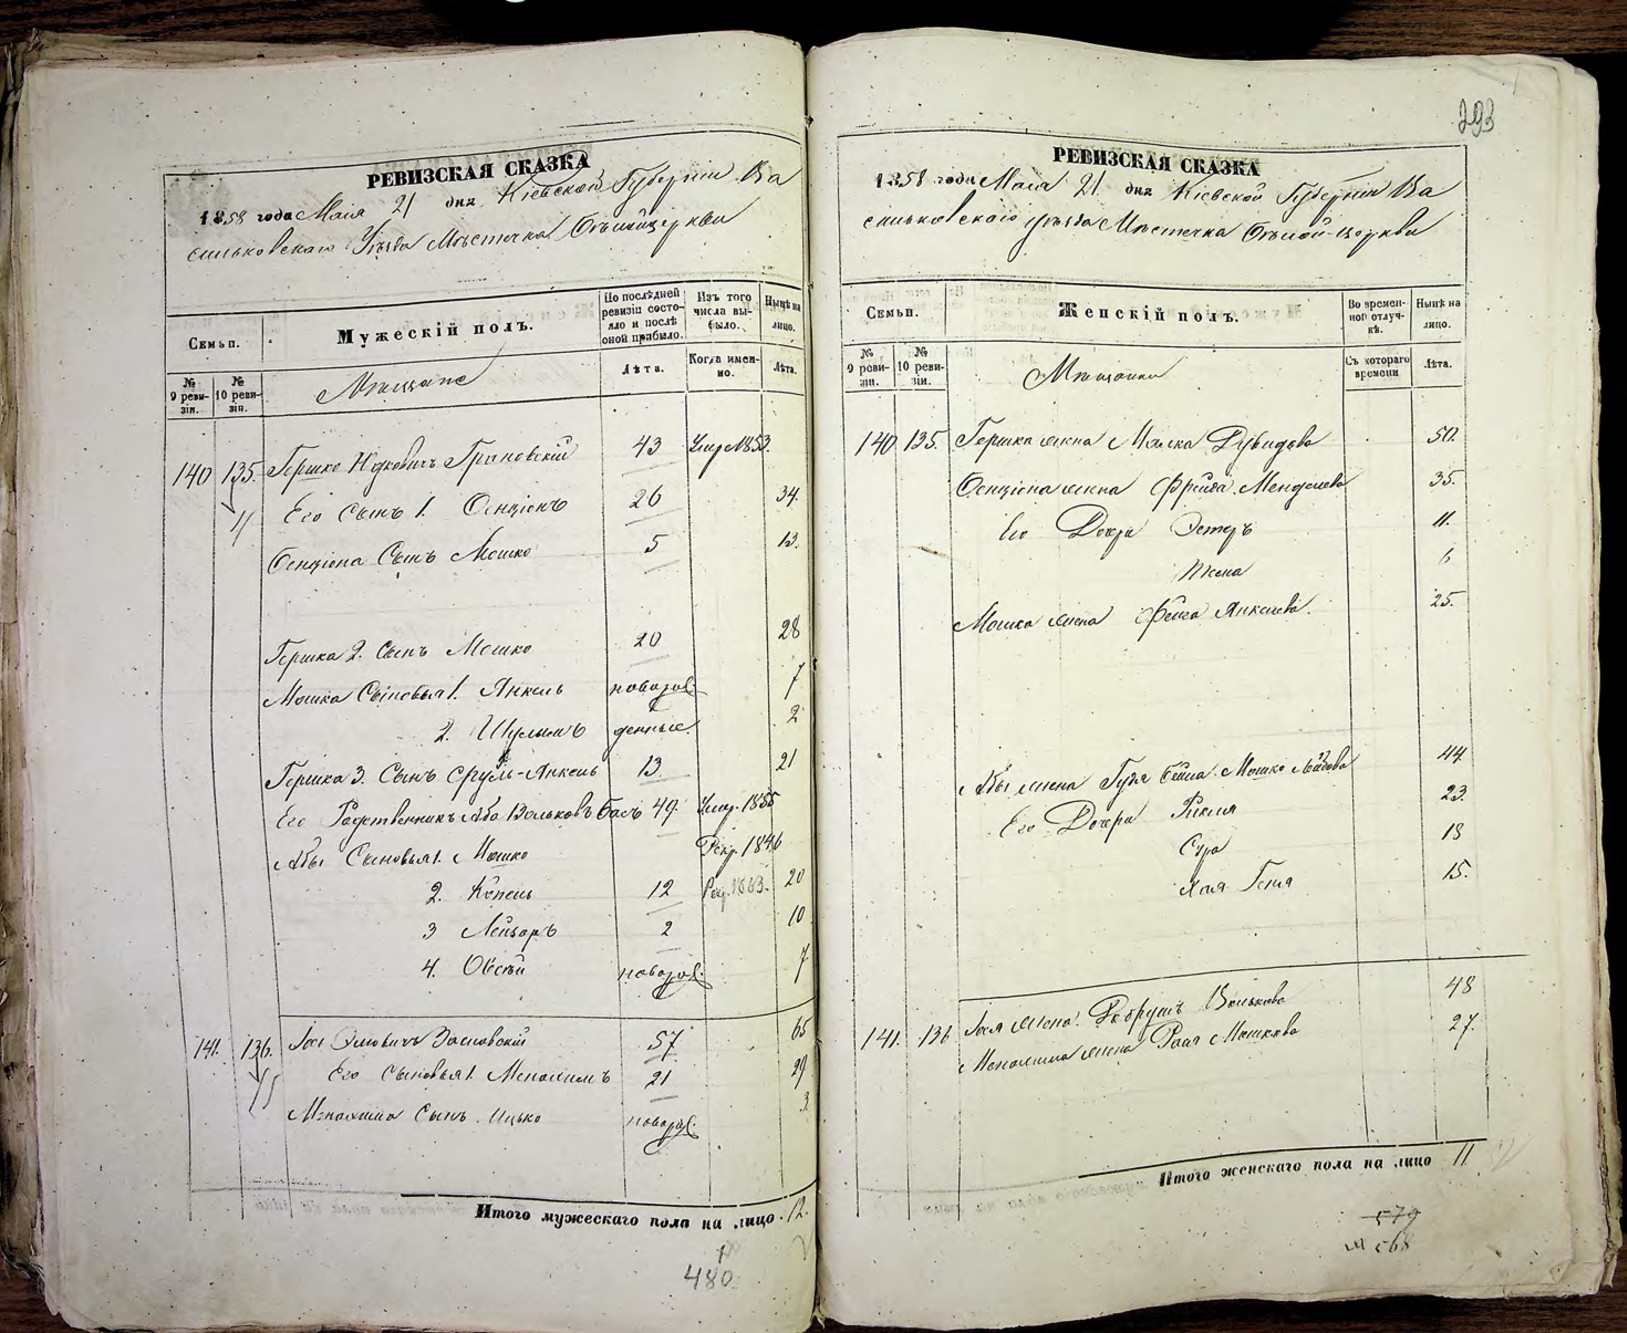 293
РЕВИЗСКАЯ СКАЗКА
1858 года Маія 21 дня Кіевской Губерніи Ва
сильковскаго Уѣзда Мѣстечка Бѣлойцеркви
Семьи.
Мужескій полъ.
По послѣдней ревизіи состояло и послѣ оной прибыло.
Изъ того числа выбыло.
Нынѣ на лицо.
№ 9 ревизіи.
№ 10 ревизіи.
Мѣщане
Лѣта.
Когда именно.
Лѣта.
140 135. Гершко Юдковичъ Грановскій 43 Умер 1853.
Его Сынъ 1. Бенціонъ 26 34.
Бенціона Сынъ Мошко 5 13.
Гершка 2. Сынъ Мошко 20 28
Мошка Сыновья 1. Янкель новорож- 7
2. Шулымъ денные. 2
Гершка 3. Сынъ Сруль-Янкель 13. 21
Его Родственникъ Аба Вольковъ 49. Умер. 1855
Абы Сыновья 1. Мошко Рекр. 1846
2. Копель 12 1863. 20
3 Лейзоръ 2 10
4. Овсѣй новорож. 7
141. 136. Заславскій 57 65
Его Сыновья 1. Менахимъ 21 29
Менахима Сынъ Ицько новорож. 3
Итого мужескаго пола на лицо 12.
480
РЕВИЗСКАЯ СКАЗКА
1858 года Маія 21 дня Кіевской Губерніи Ва
сильковскаго уѣзда Мѣстечка Бѣлой-церкви
Семьи.
Женскій полъ.
Во временной отлучкѣ.
Нынѣ на лицо.
№ 9 ревизіи.
№ 10 ревизіи.
Мѣщанки
Съ котораго времени
Лѣта.
140 135. Гершка жена Малка Дувидова 50.
Бенціона жена Фрейда Менделева 35.
Его Дочери Эстеръ 11.
6
Мошка жена Фейга Янкелева. 25.
Абы жена Бейла Мошко 44
Его Дочери Рикля 23.
Сура 18
Хая Геня 15.
141. 136 жена Добрушъ Волькова 48
Менахима жена Раля Мошкова 27.
Итого женскаго пола на лицо 11
579
568